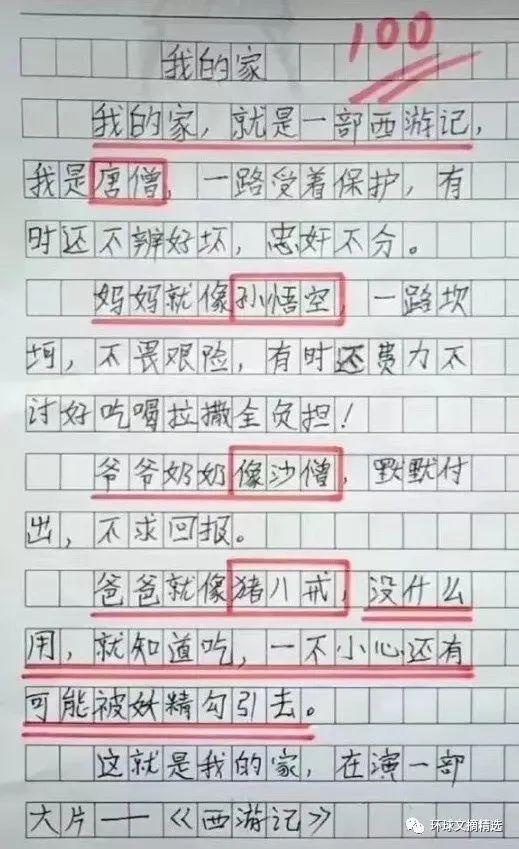 100
我的家
我的家，就是一部西游记，
我是唐僧，一路受着保护，有
时还不辨好坏，忠奸不分。
妈妈就像孙悟空，一路坎
坷，不畏艰险，有时还费力不
讨好吃喝拉撒全负担！
爷爷奶奶像沙僧，默默付
出，不求回报。
爸爸就像猪八戒，没什么
用，就知道吃，一不小心还有
可能被妖精勾引去。
这就是我的家，在演一部
大片——《西游记》
环球文摘精选